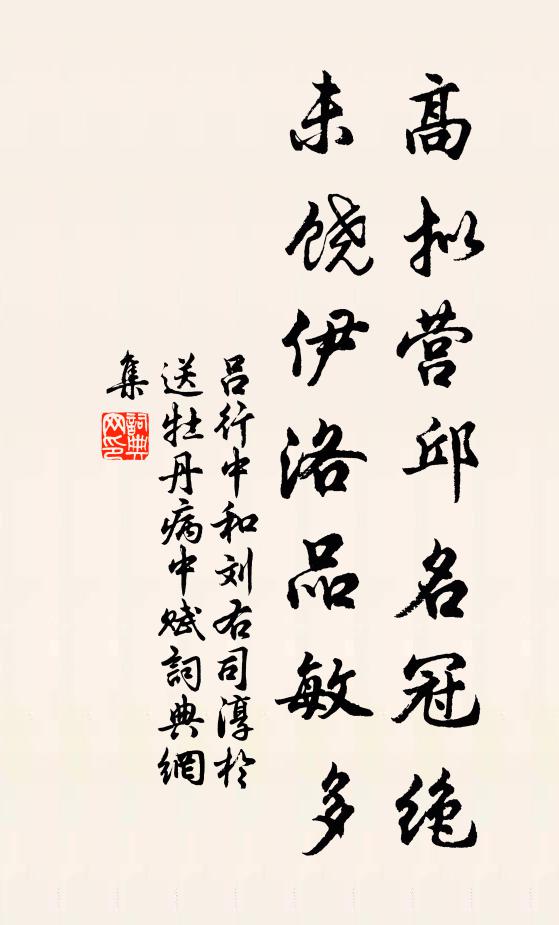 高拟营邱名冠绝
未饶伊洛品敏多
吕行中和刘右司淳於
送牡丹病中赋詞典網
集
詞典网印